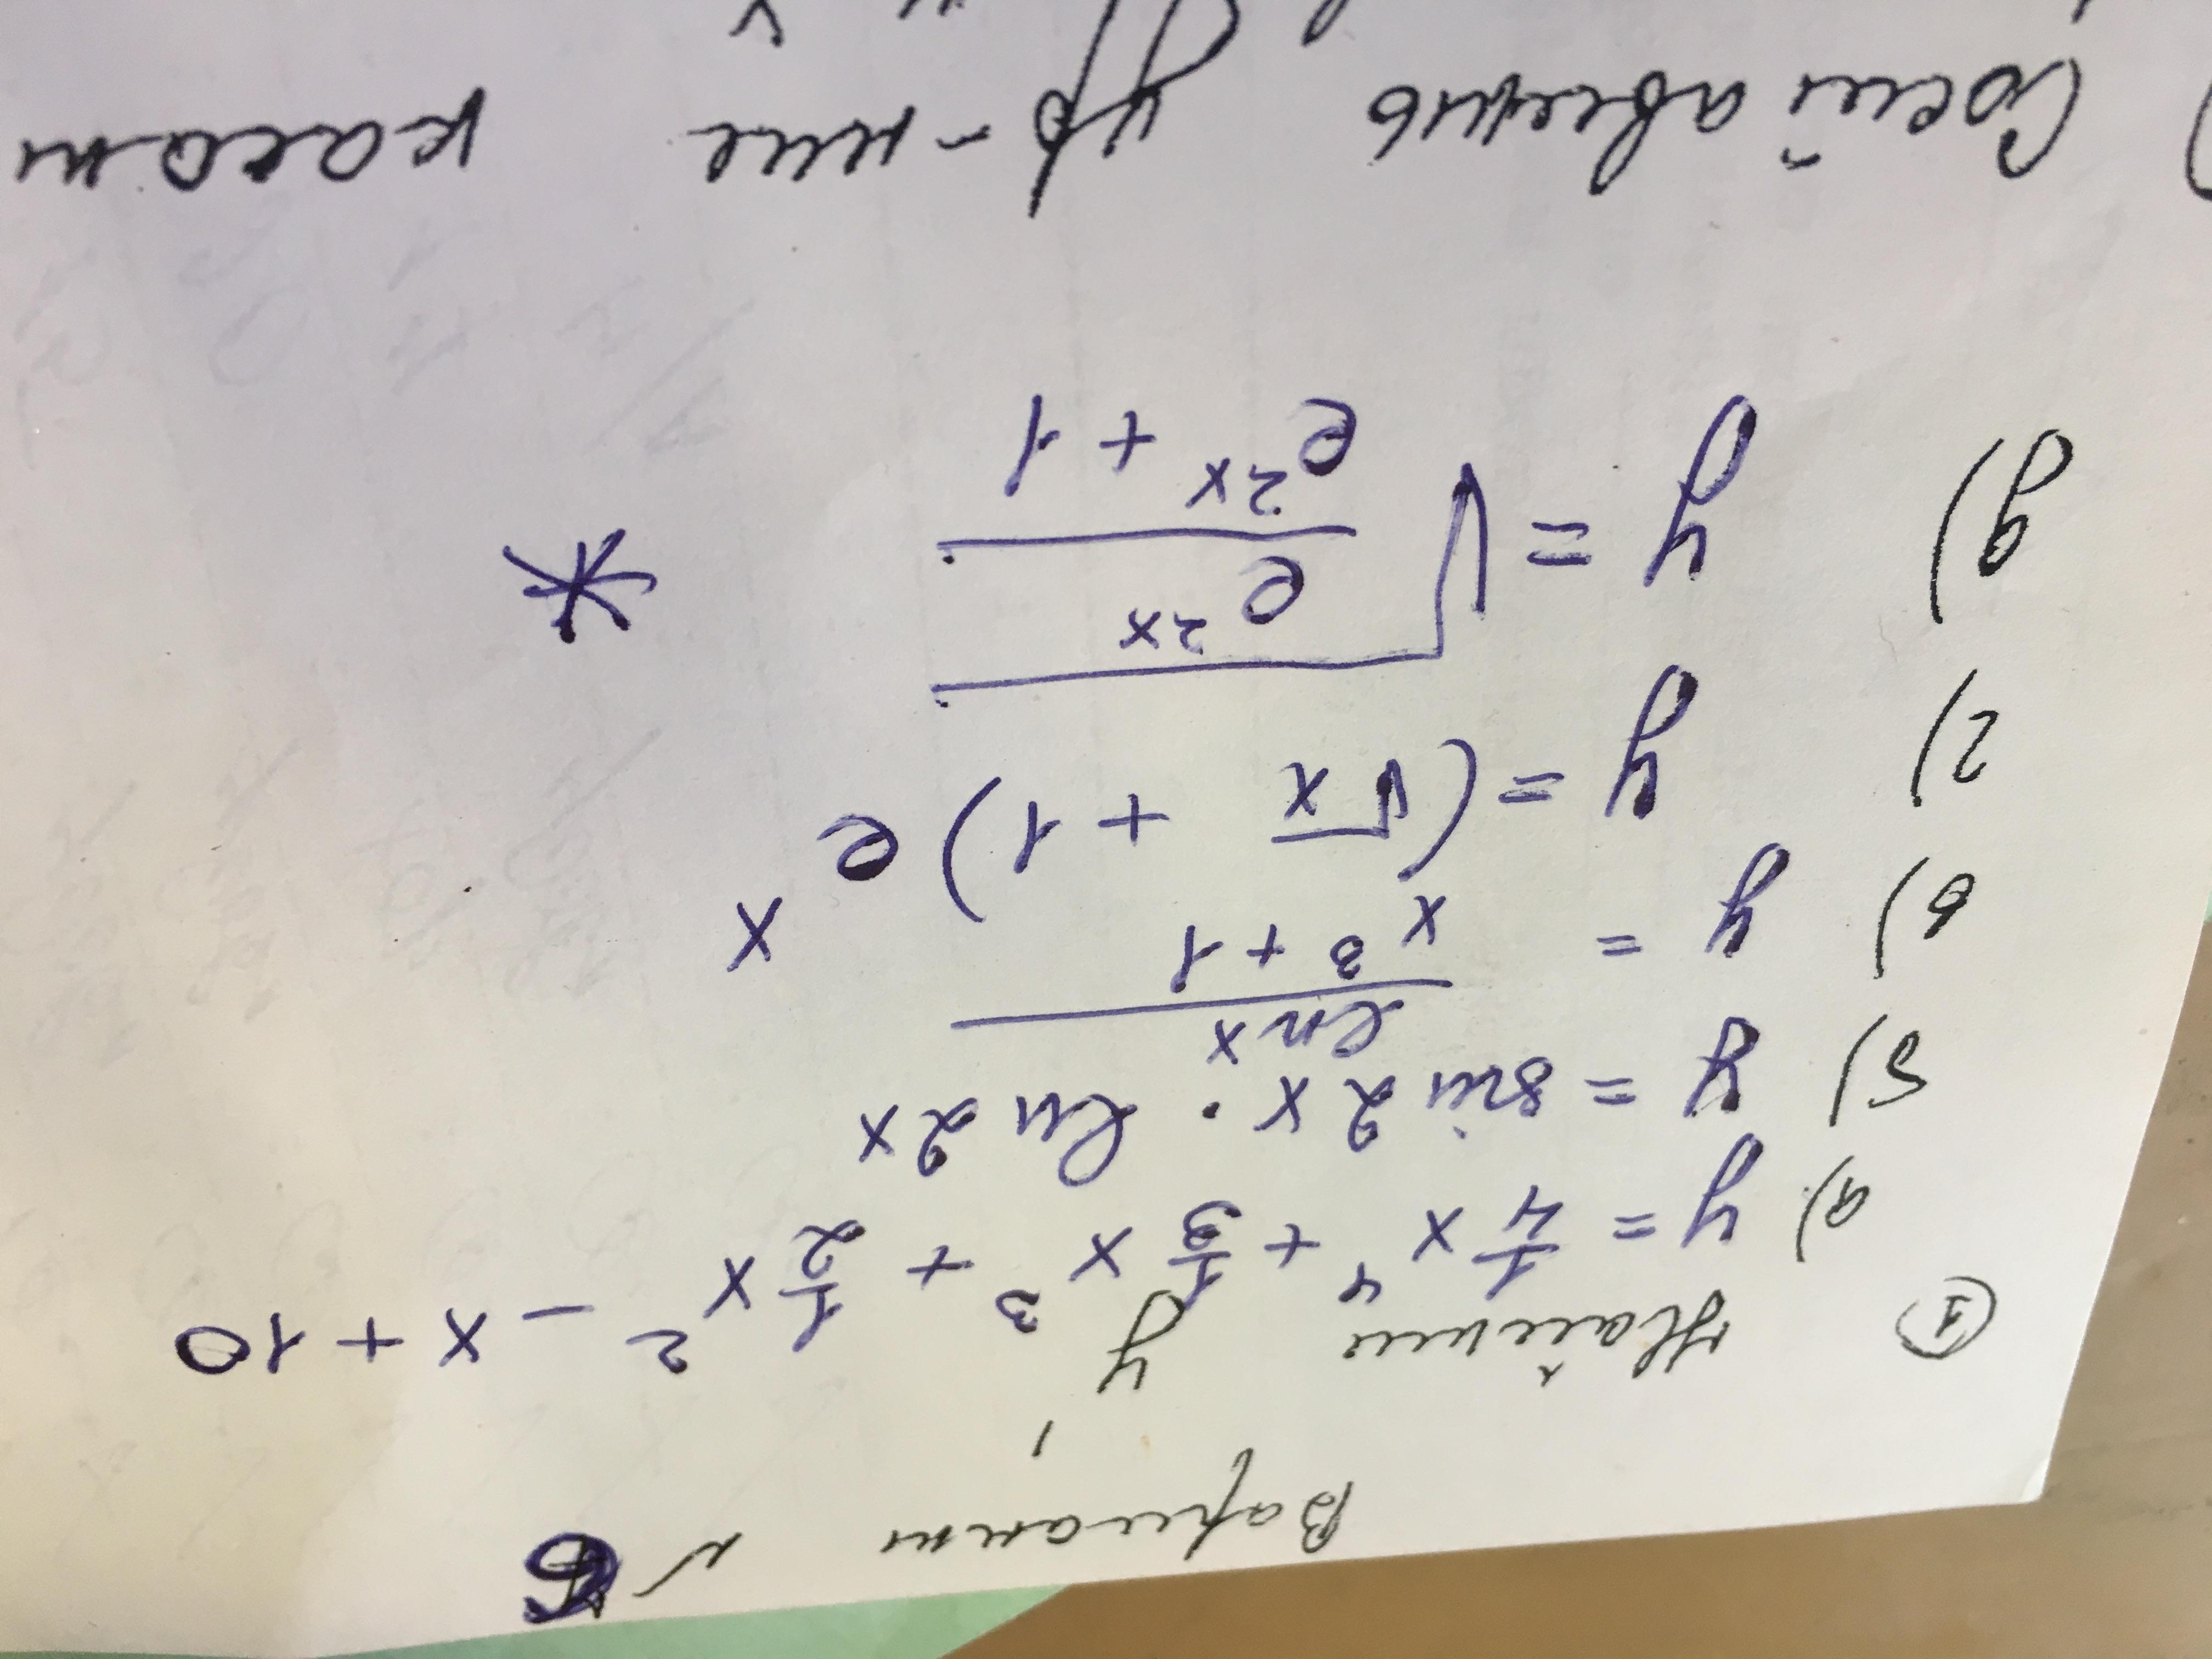 Вариант №
① Найти y'
а) y = 1/4 x⁴ + 1/3 x³ + 1/2 x² - x + 10
б) y = sin 2x · ln 2x
в) y = ln x / (x³ + 1)
г) y = (√x + 1) e^x
д) y = √(e^(2x) / (e^(2x) + 1)) *
) Составить ур-ние касат